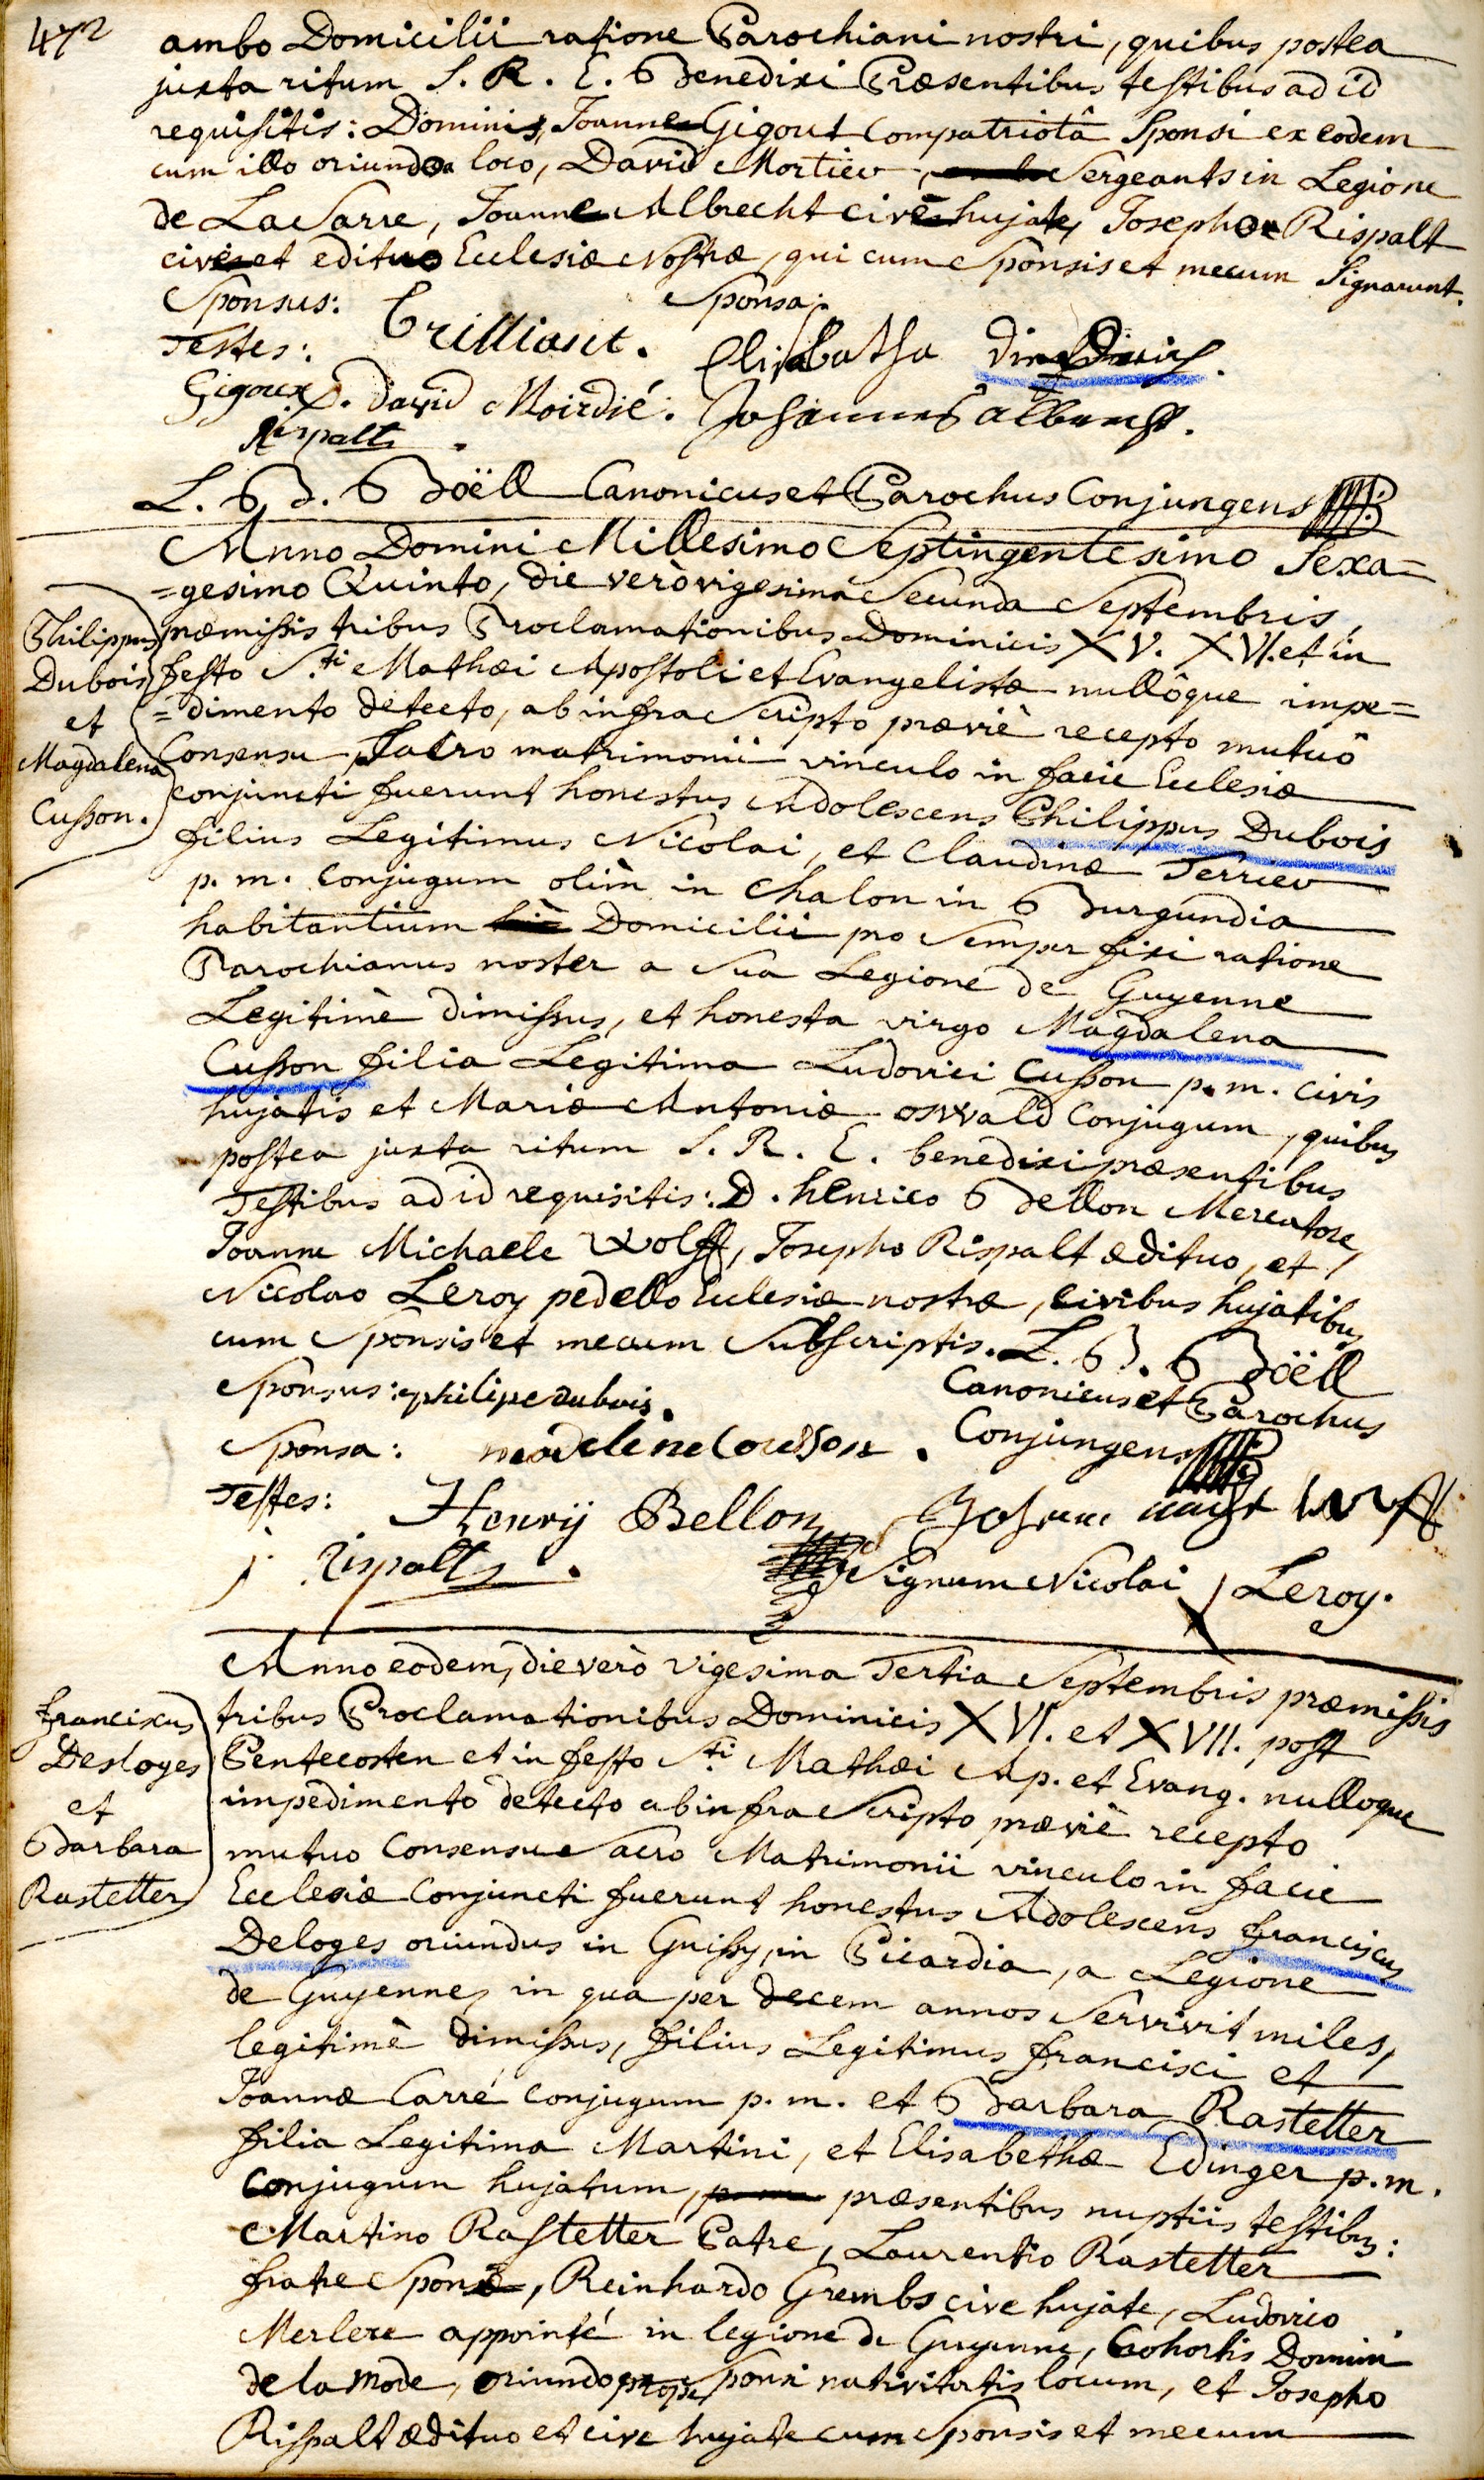 472
ambo Domicilii ratione Parochiani nostri, quibus postea
juxta ritum S. R. E. Benedixi Præsentibus testibus ad id
requisitis: Dominis, Joanne Gigout Compatriotâ Sponsi ex eodem
cum illo oriundo loco, David Mortier, Sergeants in Legione
de La Sarre, Joanne Albrecht cive hujate, Josepho Rispalt
cive et edituo Ecclesiæ Nostræ, qui cum Sponsis et mecum Signarunt.
Sponsus: Sponsa:
Testes: Brilliant. Elisabatha
Gigoux. David Moirdié. Johannes albrecht.
Rispalts.
L. B. Boëll Canonicus et Parochus Conjungens
Anno Domini Millesimo Septingentesimo Sexa=
=gesimo Quinto, die verò vigesima Secunda Septembris,
præmissis tribus Proclamationibus Dominicis XV. XVI. et in
festo S.ti Mathæi Apostoli et Evangelistæ nullôque impe=
=dimento detecto, ab infra Scripto præviè recepto mutuô
Consensu, Sacro matrimonii vinculo in facie Ecclesiæ
conjuncti fuerunt honestus Adolescens Philippus Dubois
filius Legitimus Nicolai, et Claudinæ Terrier
p. m. Conjugum olim in Chalon in Burgundia
habitantium Domicilii pro Semper fixi ratione
Parochianus noster a Sua Legione de Guyenne
Legitimè dimissus, et honesta virgo Magdalena
Cusson filia Legitima Ludovici Cusson p. m. Civis
hujatis et Mariæ Antoniæ oswald Conjugum, quibus
postea juxta ritum S. R. E. benedixi præsentibus
Testibus ad id requisitis: D. henrico Bellon Mercatore,
Joanne Michaele Wolff, Josepho Rispalt ædituo, et
Nicolao Leroy pedello Ecclesiæ nostræ, Civibus hujatibus
cum Sponsis et mecum Subscriptis. L. B. Boëll
Canonicus et Parochus
Conjungens
Sponsus: philipe dubois.
Sponsa: madelene Cousson.
Testes: Henrÿ Bellon
j. Rispalts. Signum Nicolai Leroy.
Philippus
Dubois
et
Magdalena
Cusson.
Anno eodem, die verò vigesima Tertia Septembris præmissis
tribus Proclamationibus Dominicis XVI. et XVII. post
Pentecosten et in festo S.ti Mathæi Ap. et Evang. nulloque
impedimento detecto ab infra Scripto præviè recepto
mutuo Consensu Sacro Matrimonii vinculo in facie
Ecclesiæ Conjuncti fuerunt honestus Adolescens franciscus
Deloges oriundus in Guissy, in Picardia, a Legione
de Guyenne, in qua per decem annos Servivit miles,
legitimè dimissus, filius Legitimus francisci et
Joannæ Carré conjugum p. m. et Barbara Rastetter
filia Legitima Martini, et Elisabethæ Edinger p. m.
Conjugum hujatum, præsentibus nuptiis testibus:
Martino Rastetter Patre, Laurentio Rastetter
fratre Sponsæ, Reinhardo Grembs cive hujate, Ludovico
Merlere appointé in legione de Guyenne, Cohortis Domini
de la mode, oriundo prope Sponsi nativitatis locum, et Josepho
Rispalt ædituo et cive hujate cum Sponsis et mecum
franciscus
Desloges
et
Barbara
Rastetter